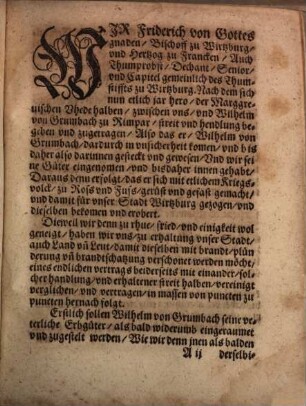 WJR Friderich von Gottes
gnaden/ Bischoff zu Wirtzburg/
vnd Hertzog zu Francken/ Auch
Thumprobst/ Dechant/ Senior/
vnd Capitel gemeinlich des Thum-
stifftes zu Wirtzburg. Nach dem sich
nun etlich jar hero/ der Marggre-
uischen Vhede halben/ zwischen vns/ vnd Wilhelm
von Grumbach zu Rimpar/ streit vnd hendlung be-
geben vnd zugetragen/ Also das er/ Wilhelm von
Grumbach/ dardurch in vnsicherheit komen/ vnd bis
daher also darinnen gesteckt vnd gewesen/ Vnd wir sei-
ne Güter eingenomen/ vnd bisdaher innen gehabt/
Daraus denn erfolgt/ das er sich mit etlichem Kriegs-
volck/ zu Ross vnd Fuss/ gerüst vnd gefast gemacht/
vnd damit für vnser Stadt Wirtzburg gezogen/ vnd
dieselben bekomen vnd erobert.
Dieweil wir denn zu rhue/ fried/ vnd einigkeit wol
geneigt/ haben wir vns/ zu erhaltung vnser Stadt/
auch Land vñ Leut/ damit dieselben mit brandt/ plün
derung vñ brandtschatzung verschonet werden möcht/
eines endlichen vertrags beiderseits mit einander/ sol-
cher handlung/ vnd erhaltener streit halben/ vereinigt
verglichen/ vnd vertragen/ in massen von puncten zu
puncten hernach folgt.
Erstlich sollen Wilhelm von Grumbach seine ve-
terliche Erbgüter/ als bald widerumb eingeraumet
vnd zugestelt werden/ Wie wir denn jnen als balden
A ij derselbi-